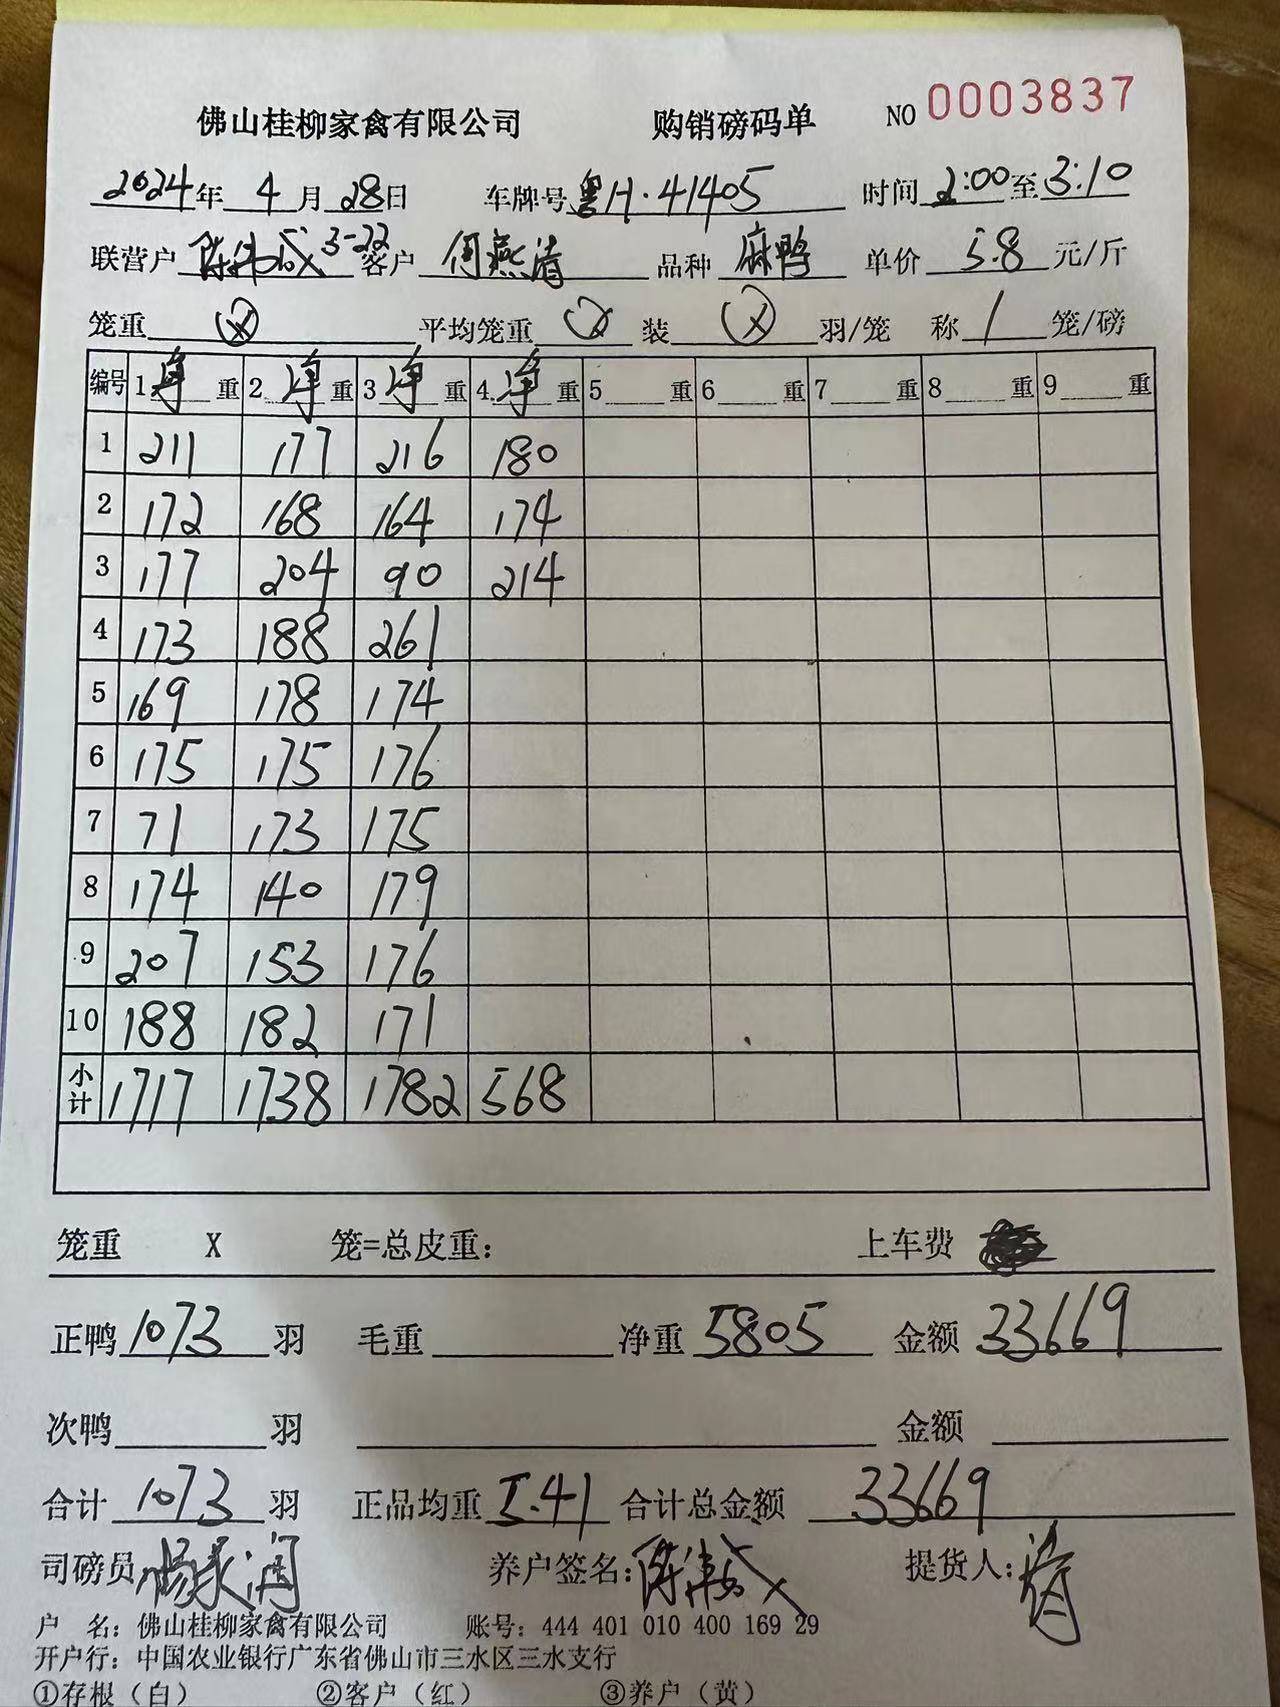 佛山桂柳家禽有限公司 购销磅码单 NO 0003837
2024年 4月 28日 车牌号 粤H·41405 时间 2:00 至 3:10
联营户 陈伟成 3-22 客户 何燕清 品种 麻鸭 单价 5.8 元/斤
笼重 平均笼重 装 羽/笼 称 1 笼/磅
编号 1净重 2净重 3净重 4净重 5重 6重 7重 8重 9重
1 211 177 216 180
2 172 168 164 174
3 177 204 90 214
4 173 188 261
5 169 178 174
6 175 175 176
7 71 173 175
8 174 140 179
9 207 153 176
10 188 182 171
小计 1717 1738 1782 568
笼重 X 笼=总皮重: 上车费
正鸭 1073 羽 毛重 净重 5805 金额 33669
次鸭 羽 金额
合计 1073 羽 正品均重 5.41 合计总金额 33669
司磅员 养户签名: 陈伟成 提货人: 清
户 名: 佛山桂柳家禽有限公司 账号: 444 401 010 400 169 29
开户行: 中国农业银行广东省佛山市三水区三水支行
①存根（白） ②客户（红） ③养户（黄）